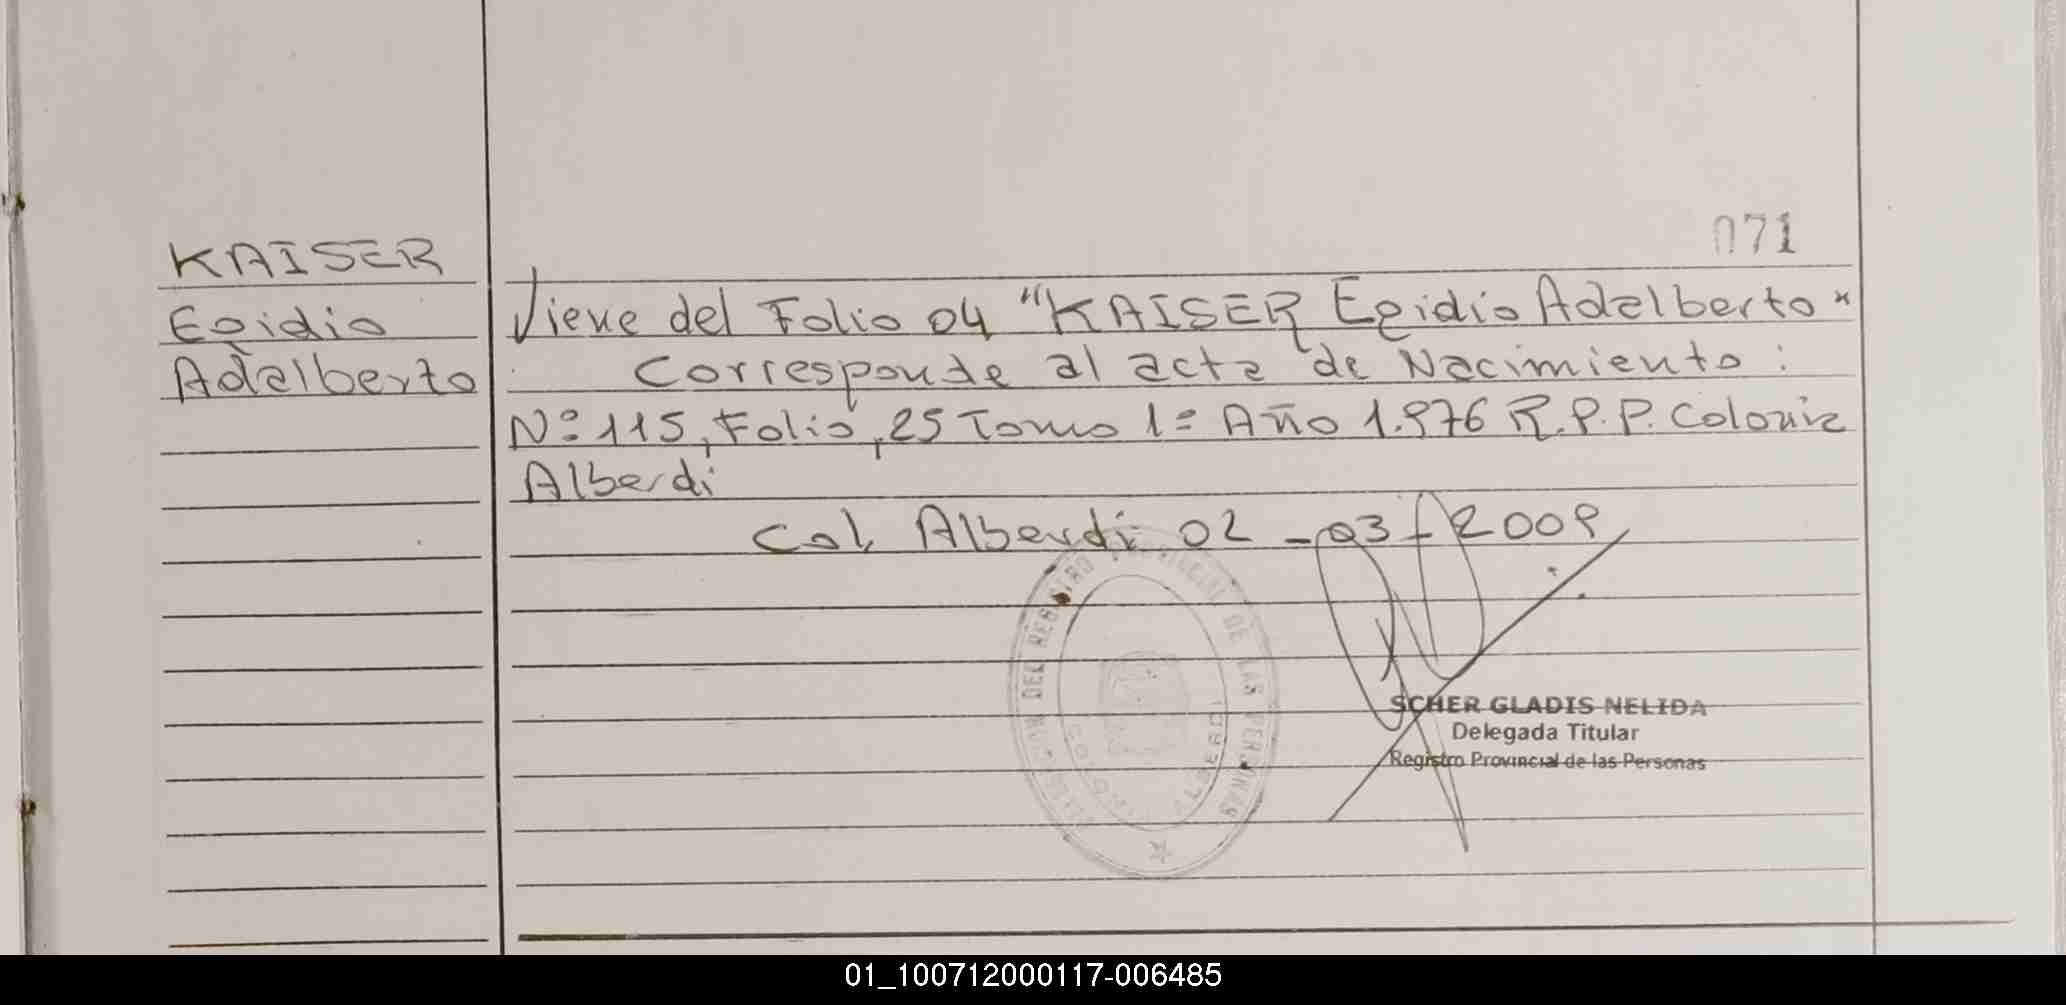 071
KAISER
Egidio
Adalberto
Viene del Folio 04 "KAISER Egidio Adalberto"
Corresponde al acta de Nacimiento:
Nº 115, Folio, 25 Tomo 1º Año 1.976 R.P.P. Colonia
Alberdi
Col. Alberdi 02-03-2009
DEL REGISTRO PROVINCIAL DE LAS PERSONAS
COLONIA ALBERDI
SCHER GLADIS NELIDA
Delegada Titular
Registro Provincial de las Personas
01_100712000117-006485